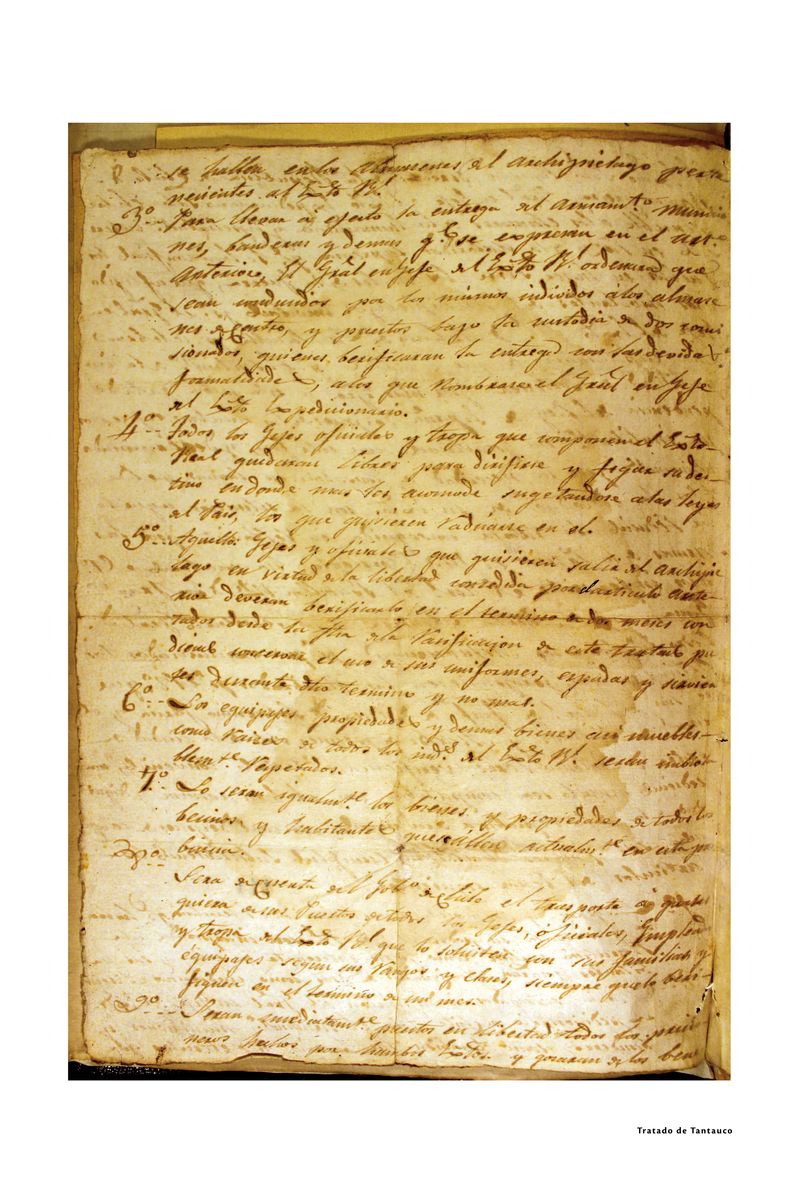 se hallen en los almasenes del archipielago perte
nesientes al Exto Rl
3º Para llevar á efecto la entrega del armamto municio
nes, banderas y demas qe se expresan en el art
anterior, El Gräl en Gefe del Exto Rl ordenará que
sean conducidos por los mismos individos á los almase
nes de Castro, y puestos bajo la custodia de dos comi
sionados, quienes berificaran la entrega con las devidas
formalidades, a los que nombrare el Gräl en Gefe
del Exto Expedicionario.
4º Todos los Gefes ofisiales y tropa que componen el Exto
Real quedaran libres para dirijirse y fijar su des-
tino en donde mas les acomode sugetandose a las leyes
del Pais, los que quisieren radicarse en el.
5º Aquellos Gefes y ofisiales que quisieren salir del Archipie
lago en virtud de la libertad consedida por el articulo ante-
rior deveran berificarlo en el termino de dos meses con
tados desde la fha de la ratificacion de este tratado pu
diendo conservar el uso de sus uniformes, espadas y sirvien
tes durante dho termino y no mas.
6º Los equipajes propiedades y demas bienes asi muebles-
como raises de todos los inds del Exto Rl seran inbiola
blemte rapetados.
7º Lo seran igualmte los bienes y propiedades de todos los
becinos y habitantes que se allen actualmte en esta pro
bincia.
8º Sera de cuenta del Gobo de Chile el trasporte a qual
quiera de sus Puertos de todos los Gefes, ofisiales, Emplead
y tropa del Exto Rl que lo soliciten con sus familias y
equipajes segun sus rangos y clases, siempre que lo beri-
fiquen en el termino de un mes.
9º Seran inmediatamte puestos en libertad todos los prici
neros hechos por hambos Extos y gosaran de los bene
Tratado de Tantauco